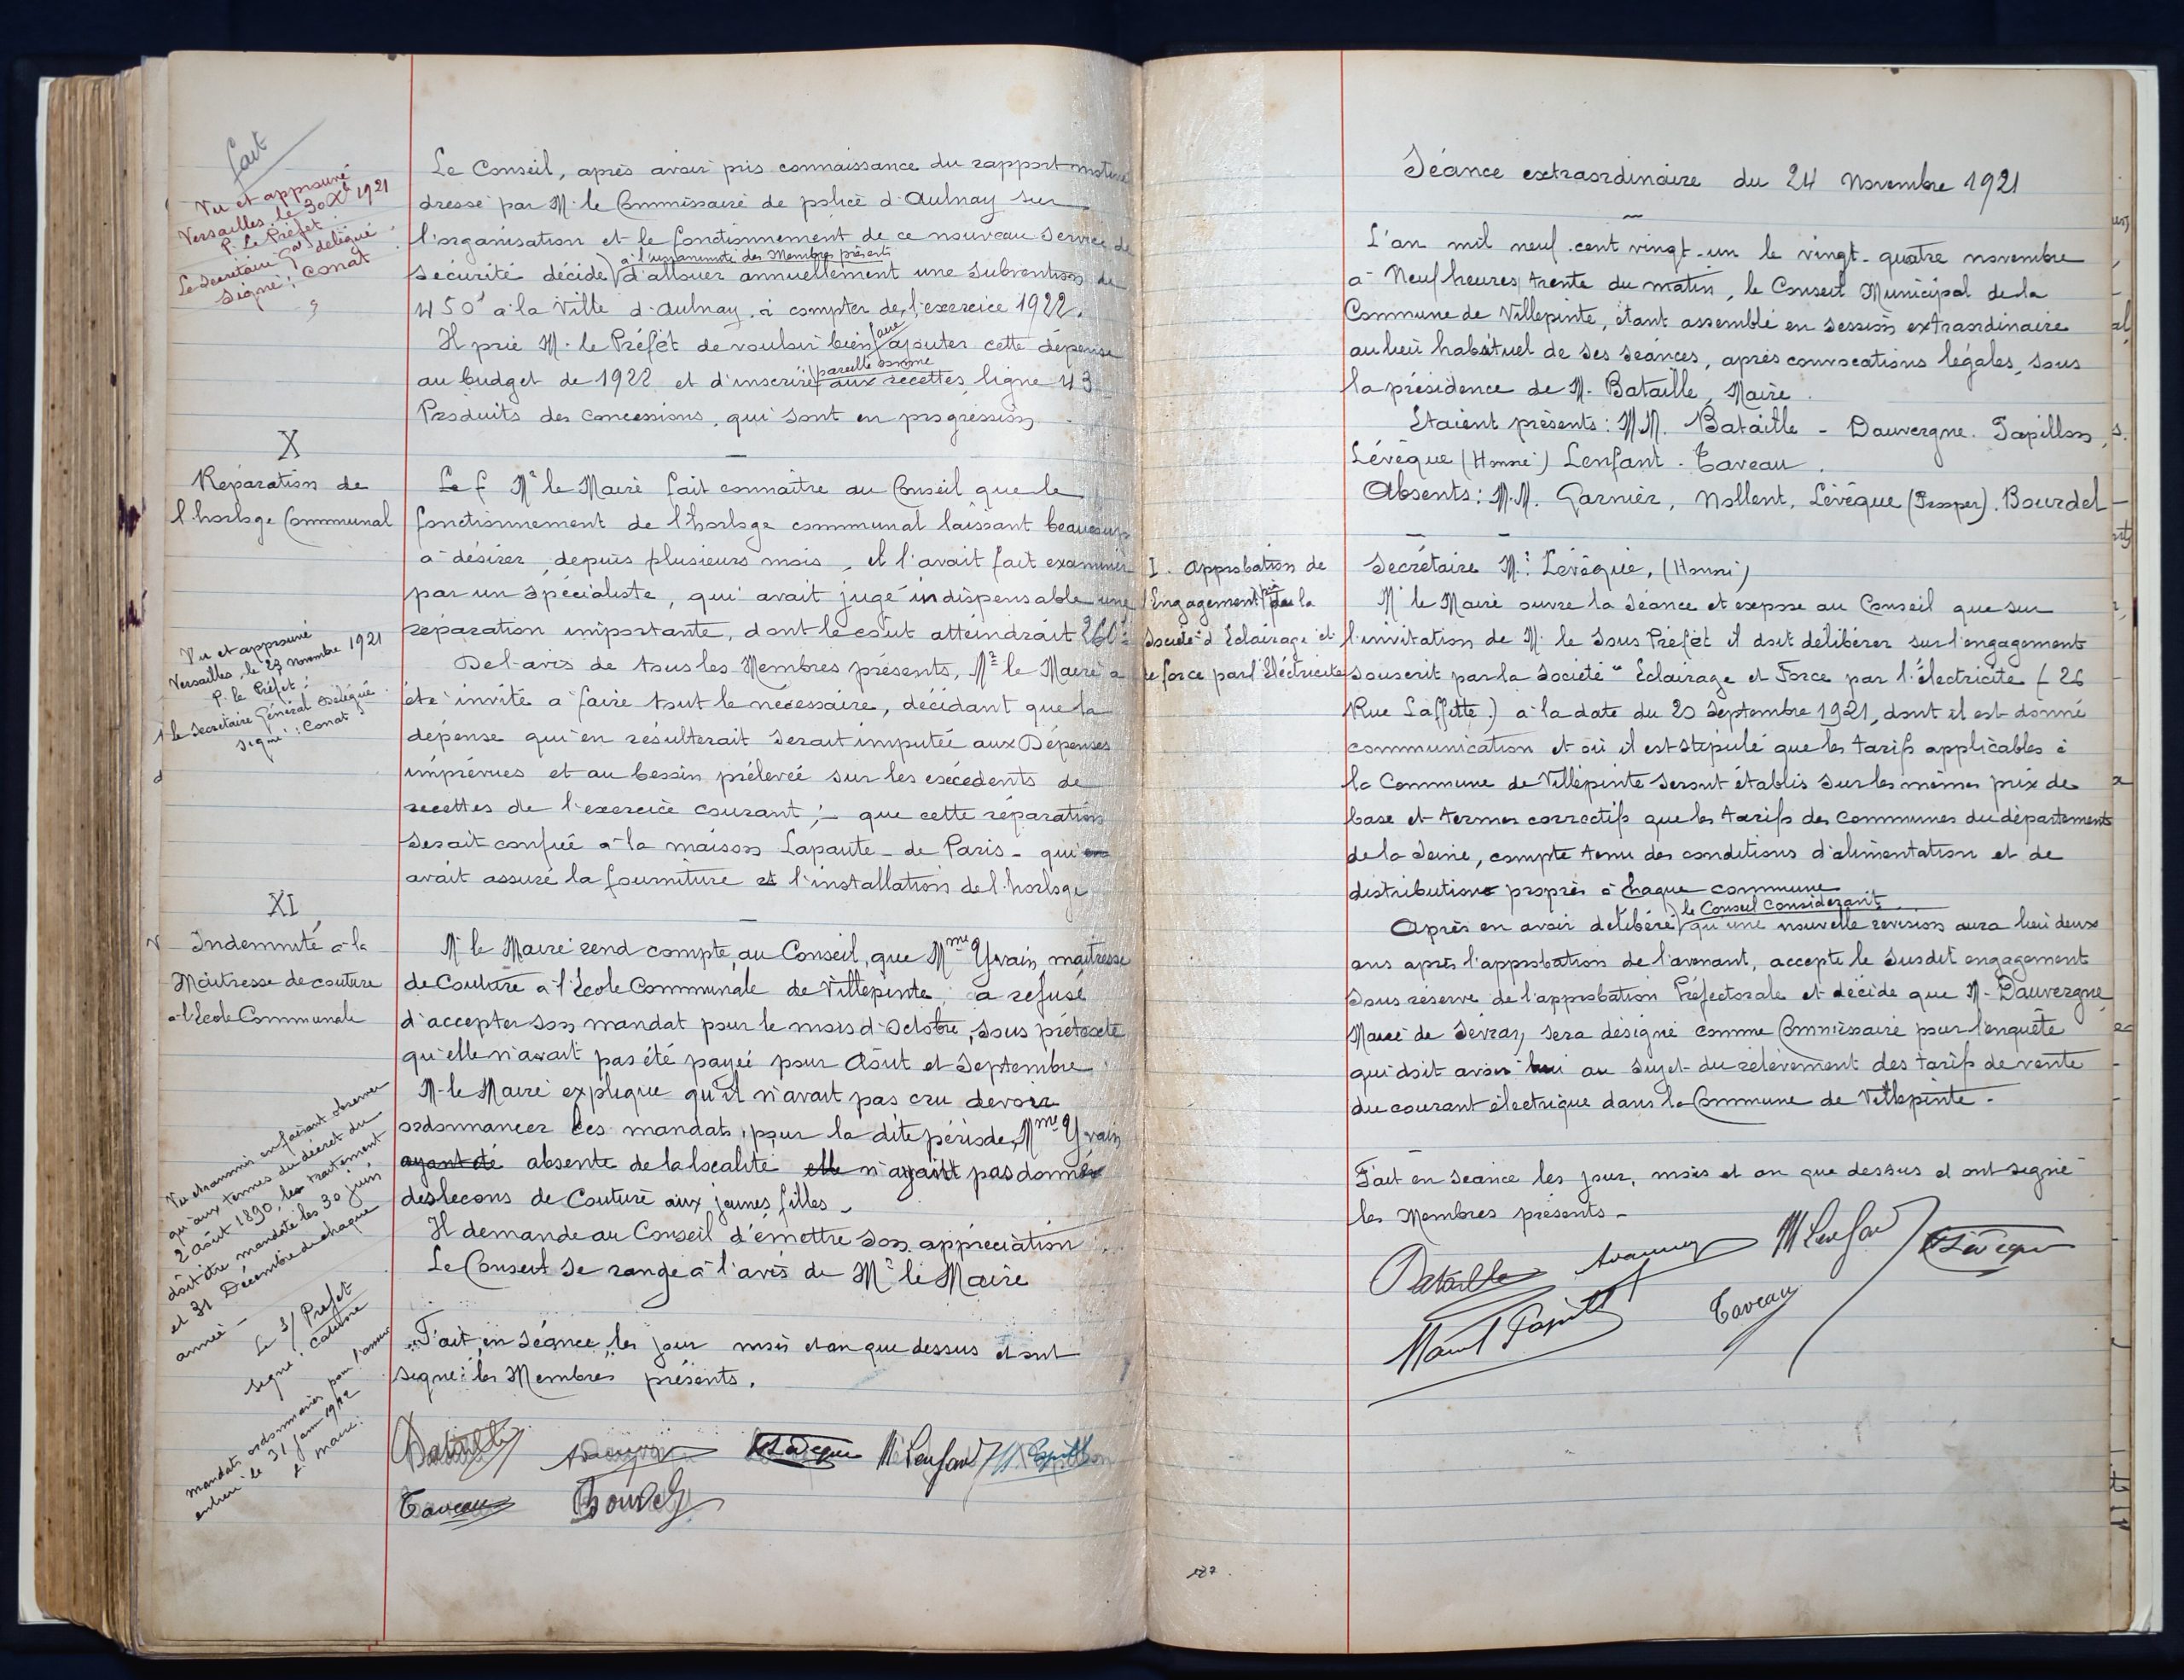 fait
Vu et approuvé
Versailles, le 30 Xbre 1921
P. Le Préfet
Le Secrétaire Gal délégué
Signé: Conat
Le Conseil, après avoir pris connaissance du rapport motivé
dressé par M. le Commissaire de police d'Aulnay sur
l'organisation et le fonctionnement de ce nouveau service de
à l'unanimité des Membres présents
sécurité décide d'allouer annuellement une subvention de
450f à la Ville d'Aulnay, à compter de l'exercice 1922.
faire
Il prie M. le Préfet de vouloir bien ajouter cette dépense
pareille somme
au budget de 1922 et d'inscrire aux recettes, ligne 43
Produits des concessions, qui sont en progression.
X
Réparation de
l'horloge Communal
Mr le Maire fait connaître au Conseil que le
fonctionnement de l'horloge communal laissant beaucoup
à désirer, depuis plusieurs mois, il l'avait fait examiner
par un spécialiste, qui avait jugé indispensable une
réparation importante, dont le coût atteindrait 260f
De l'avis de tous les Membres présents, Mr le Maire a
été invité à faire tout le nécessaire, décidant que la
dépense qui en résulterait serait imputée aux Dépenses
imprévues et au besoin prélevée sur les excédents de
recettes de l'exercice courant; - que cette réparation
serait confiée à la maison Lapaute - de Paris - qui en
avait assuré la fourniture et l'installation de l'horloge
Vu et approuvé
Versailles, le 29 novembre 1921
P. le Préfet:
le Secrétaire Général Délégué
signé: Conat
XI
Indemnité à la
Maîtresse de couture
à l'école Communale
Mr le Maire rend compte, au Conseil, que Mme Yvain, maîtresse
de Couture à l'école Communale de Villepinte, a refusé
d'accepter son mandat pour le mois d'Octobre, sous prétexte
qu'elle n'avait pas été payée pour Août et Septembre
M. le Maire explique qu'il n'avait pas cru devoir
ordonnancer ces mandats, pour la dite période, Mme Yvain
ayant été absente de la localité elle n'ayant pas donné
des leçons de Couture aux jeunes filles.
Il demande au Conseil d'émettre son appréciation.
Le Conseil se range à l'avis de Mr le Maire
Vu et transmis en faisant observer
qu'aux termes du décret du
2 août 1890, le traitement
doit être mandaté les 30 juin
et 31 Décembre de chaque
année -
Le S/ Préfet
signé:
mandats ordonnancés pour l'année
entière le 31 janv 1922
Le maire:
Fait en séance, les jour mois et an que dessus et ont
signé: les Membres présents.
Bataille Dauvergne Lévêque M Lenfant M Papillon
Taveau Bourdel
Séance extraordinaire du 24 Novembre 1921
L'an mil neuf cent vingt-un le vingt-quatre novembre
à Neuf heures trente du matin, le Conseil Municipal de la
Commune de Villepinte, étant assemblé en session extraordinaire
au lieu habituel de ses séances, après convocations légales, sous
la présidence de M. Bataille, Maire.
Etaient présents: M.M. Bataille - Dauvergne. Papillon,
Lévêque (Honoré) Lenfant. Taveau.
Absents: M.M. Garnier, Nollent, Lévêque (Prosper). Bourdel
Secrétaire Mr: Lévêque, (Honoré)
I. Approbation de
l'Engagement pris par la
Société d'Eclairage et
de force par l'Electricité
Mr le Maire ouvre la séance et expose au Conseil que sur
l'invitation de M. le Sous Préfet il doit délibérer sur l'engagement
souscrit par la société "Eclairage et Force par l'électricité (26
Rue Laffitte.) à la date du 20 septembre 1921, dont il est donné
communication et où il est stipulé que les tarifs applicables à
la Commune de Villepinte seront établis sur les mêmes prix de
base et termes correctifs que les tarifs des communes du département
de la Seine, compte tenu des conditions d'alimentation et de
distribution propres à chaque commune
le Conseil considérant
Après en avoir délibéré qu'une nouvelle revision aura lieu deux
ans après l'approbation de l'avenant, accepte le susdit engagement
sous réserve de l'approbation Préfectorale et décide que M. Dauvergne
Maire de Sevran, sera désigné comme Commissaire pour l'enquête
qui doit avoir lieu au sujet du relèvement des tarifs de vente
du courant électrique dans la Commune de Villepinte.
Fait en séance les jour, mois et an que dessus et ont signé
les Membres présents -
Bataille Dauvergne M Lenfant Lévêque
Marcel Papillon Taveau
187.